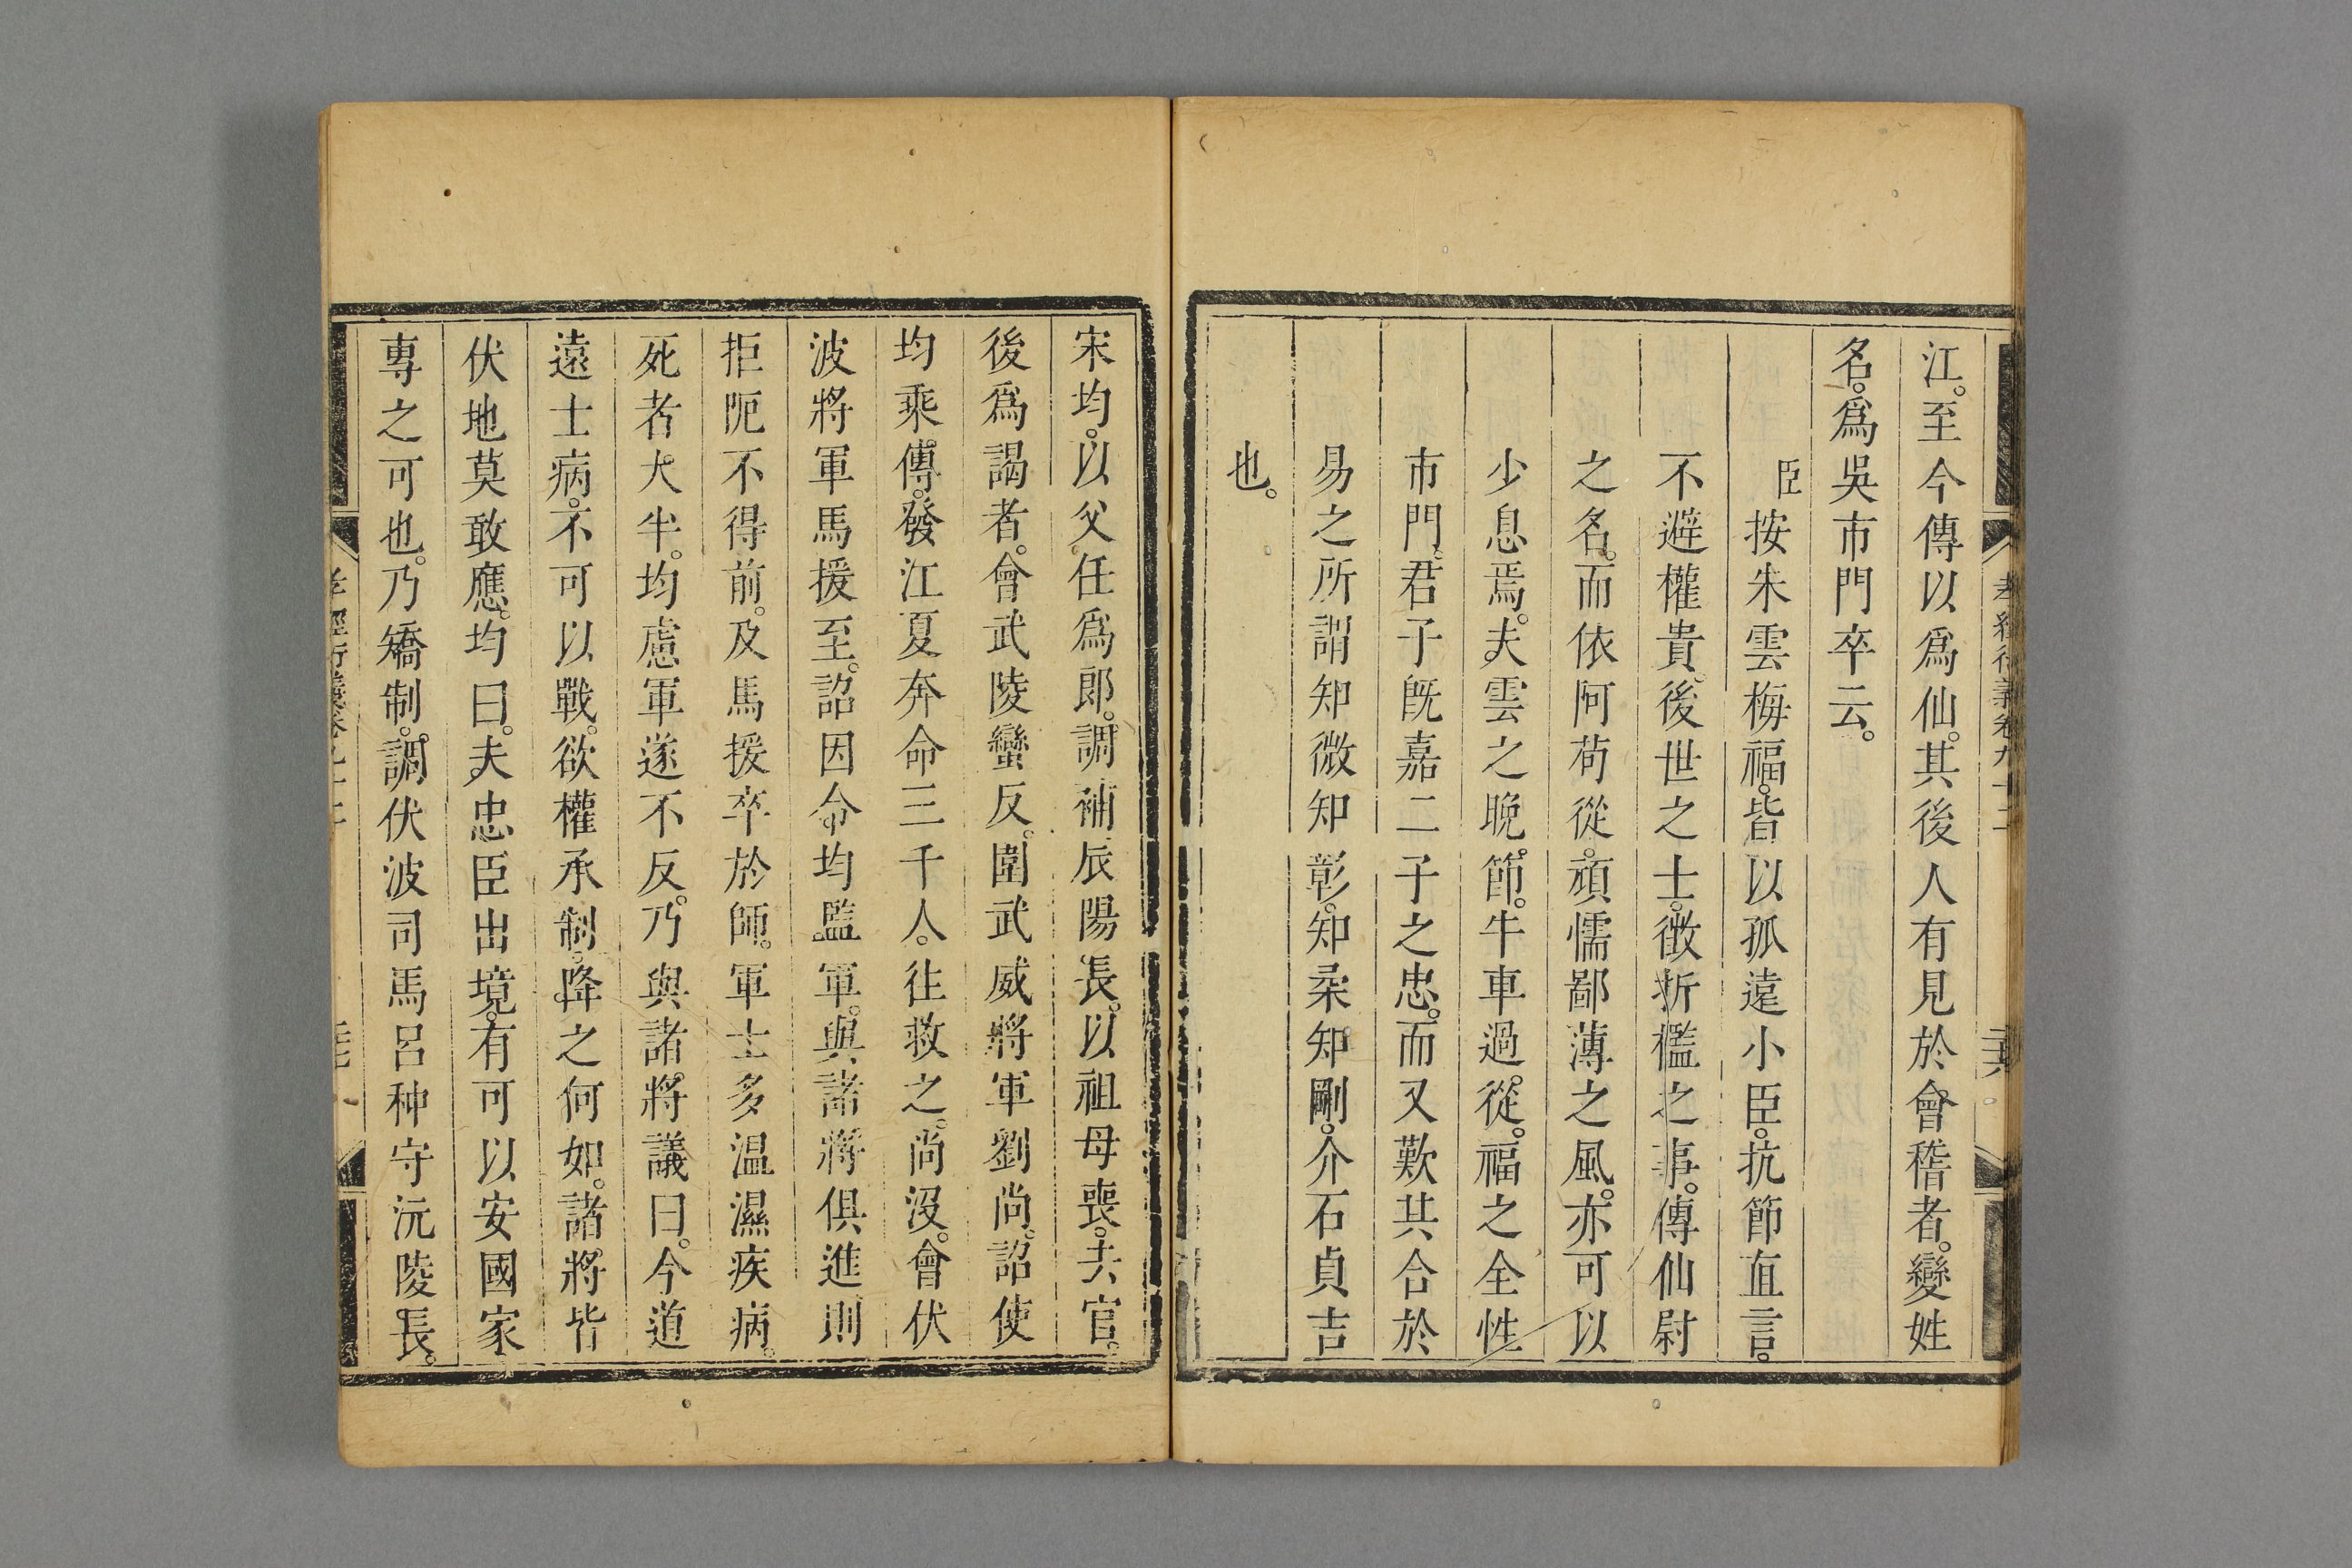 江。至今傳以爲仙。其後人有見於會稽者。變姓
名。爲吳市門卒云。
臣按朱雲梅福。皆以孤遠小臣。抗節直言。
不避權貴。後世之士。徴折檻之事。傳仙尉
之名。而依阿苟從。頑懦鄙薄之風。亦可以
少息焉。夫雲之晚節。牛車過從。福之全性
市門。君子旣嘉二子之忠。而又歎其合於
易之所謂知微知彰。知柔知剛。介石貞吉
也。
孝經衍義卷九十二
宋均。以父任爲郎。調補辰陽長。以祖母喪。去官。
後爲謁者。會武陵蠻反。圍武威將軍劉尚。詔使
均乘傳。發江夏奔命三千人。往救之。尚沒。會伏
波將軍馬援至。詔因令均監軍。與諸將俱進則
拒阨不得前。及馬援卒於師。軍士多温濕疾病。
死者大半。均慮軍遂不反。乃與諸將議曰。今道
遠士病。不可以戰。欲權承制。降之何如。諸將皆
伏地莫敢應。均曰。夫忠臣出境。有可以安國家
專之可也。乃矯制。調伏波司馬呂种守沅陵長。